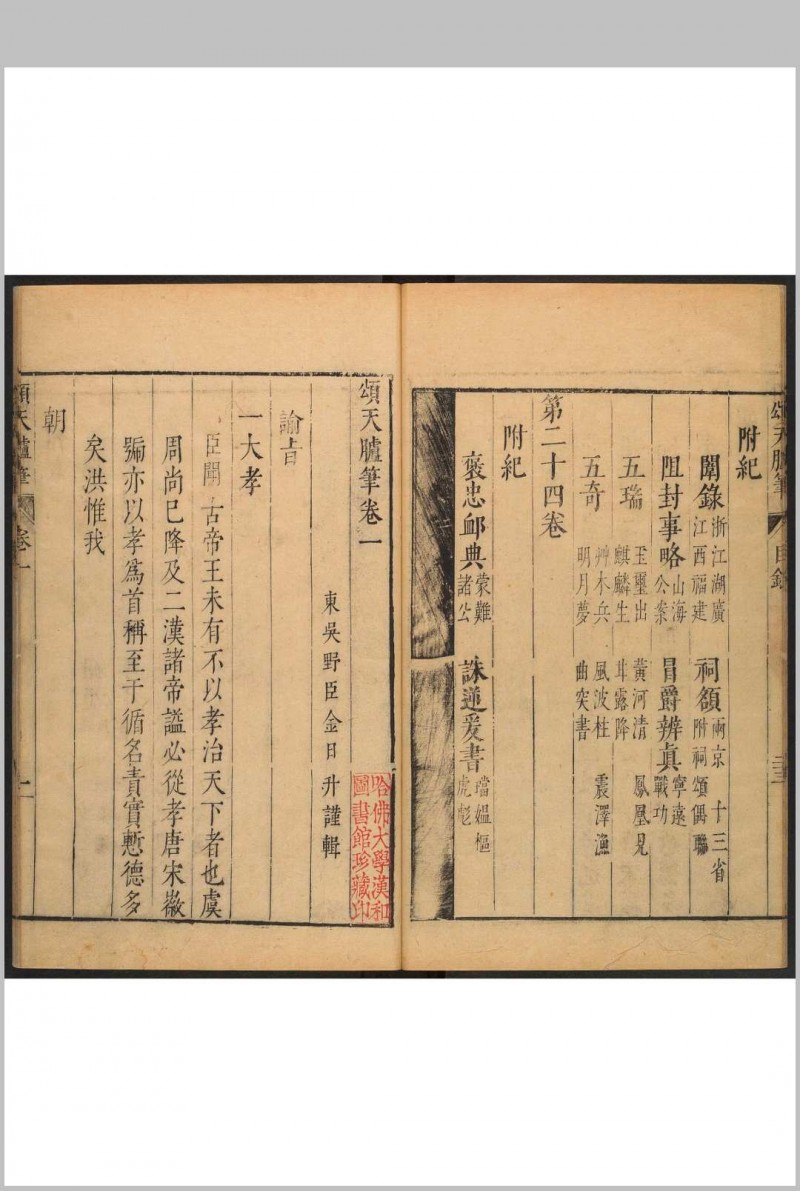 頌天臚筆 目錄
附紀
闈錄 浙江湖廣 江西福建 祠額 兩京十三省 附祠頌偶聯
阻封事略 山海 公案 冒爵辨眞 寧遠 戰功
五瑞 玉璽出 麒麟生 黃河清 甘露降 鳳凰見
五奇 艸木兵 明月夢 風波柱 曲突書 震澤漁
第二十四卷
附紀
褒忠卹典 蒙難 諸公 誅逆爰書 璫媼樞 虎彪
頌天臚筆卷一
東吳野臣金日升謹輯
哈佛大學漢和圖書館珍藏印
諭旨
一大孝
臣聞古帝王未有不以孝治天下者也虞
周尚已降及二漢諸帝謚必從孝唐宋徽
號亦以孝爲首稱至于循名責實慙德多
矣洪惟我
朝
頌天臚筆 卷一 一